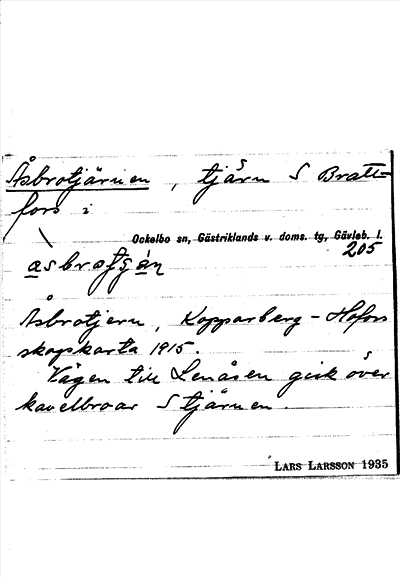 Åsbrotjärnen, tjärn S Bratt=
fors i
Ockelbo sn, Gästriklands v. doms. tg, Gävleb. l.
205
asbrotjän
Åsbrotjern, Kopparberg-Hofors
skogskarta 1915.
Vägen till Lenåsen gick över
kavelbroar S tjärnen.
LARS LARSSON 1935